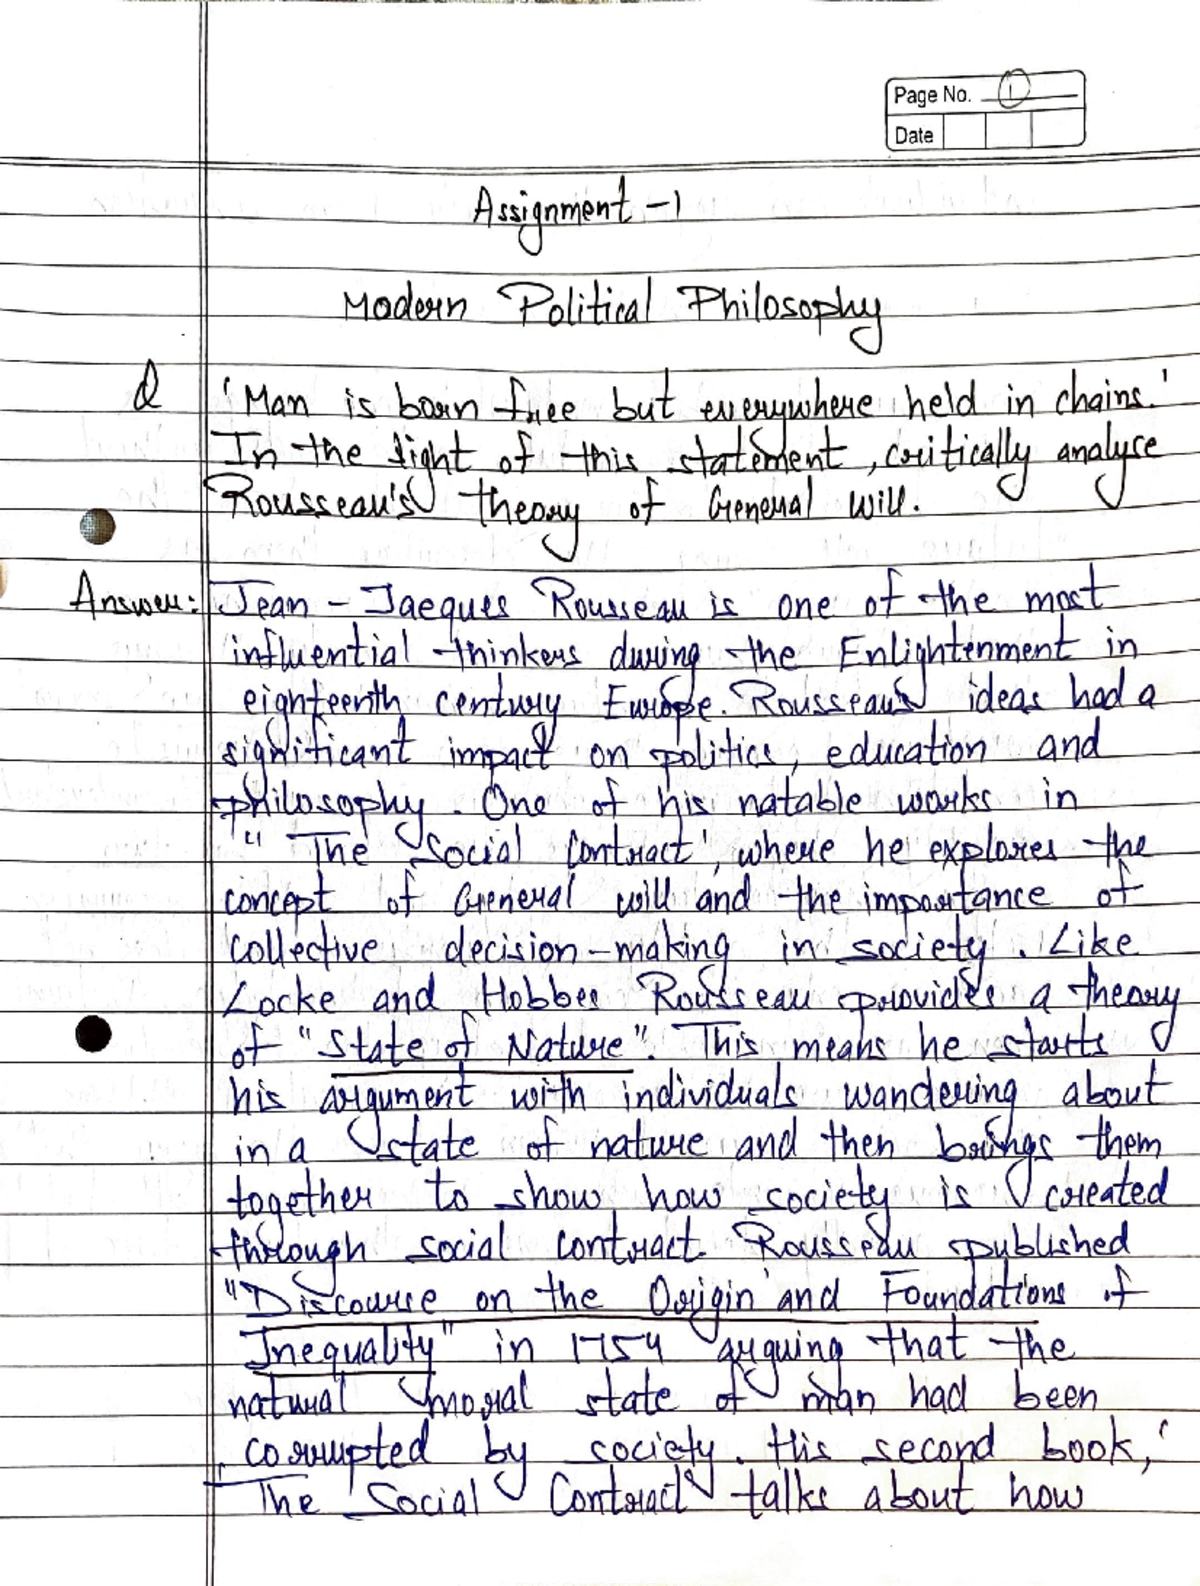 Page No. 1
Date
Assignment -1
Modern Political Philosophy
Q 'Man is born free but everywhere held in chains.'
In the light of this statement, critically analyse
Rousseau's theory of General will.
Answer: Jean - Jaeques Rousseau is one of the most
influential thinkers during the Enlightenment in
eighteenth century Europe. Rousseau's ideas had a
significant impact on politics, education and
philosophy. One of his natable works in
" The Social Contract', where he explores the
concept of General will and the importance of
collective decision-making in society. Like
Locke and Hobbes Rousseau provides a theory
of "State of Nature". This means he starts
his argument with individuals wandering about
in a state of nature and then brings them
together to show how society is created
through social contract. Rousseau published
"Discourse on the Origin and Foundations of
Inequality" in 1754 arguing that the
natural moral state of man had been
corrupted by society. His second book, '
The Social Contract' talks about how